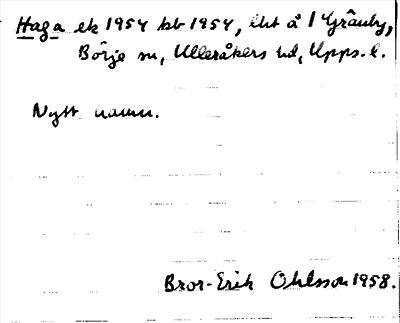 Haga ek 1954 kb 1954, lht å 1 Gränby,
Börje sn, Ulleråkers hd, Upps. l.
Nytt namn.
Bror-Erik Ohlsson 1958.